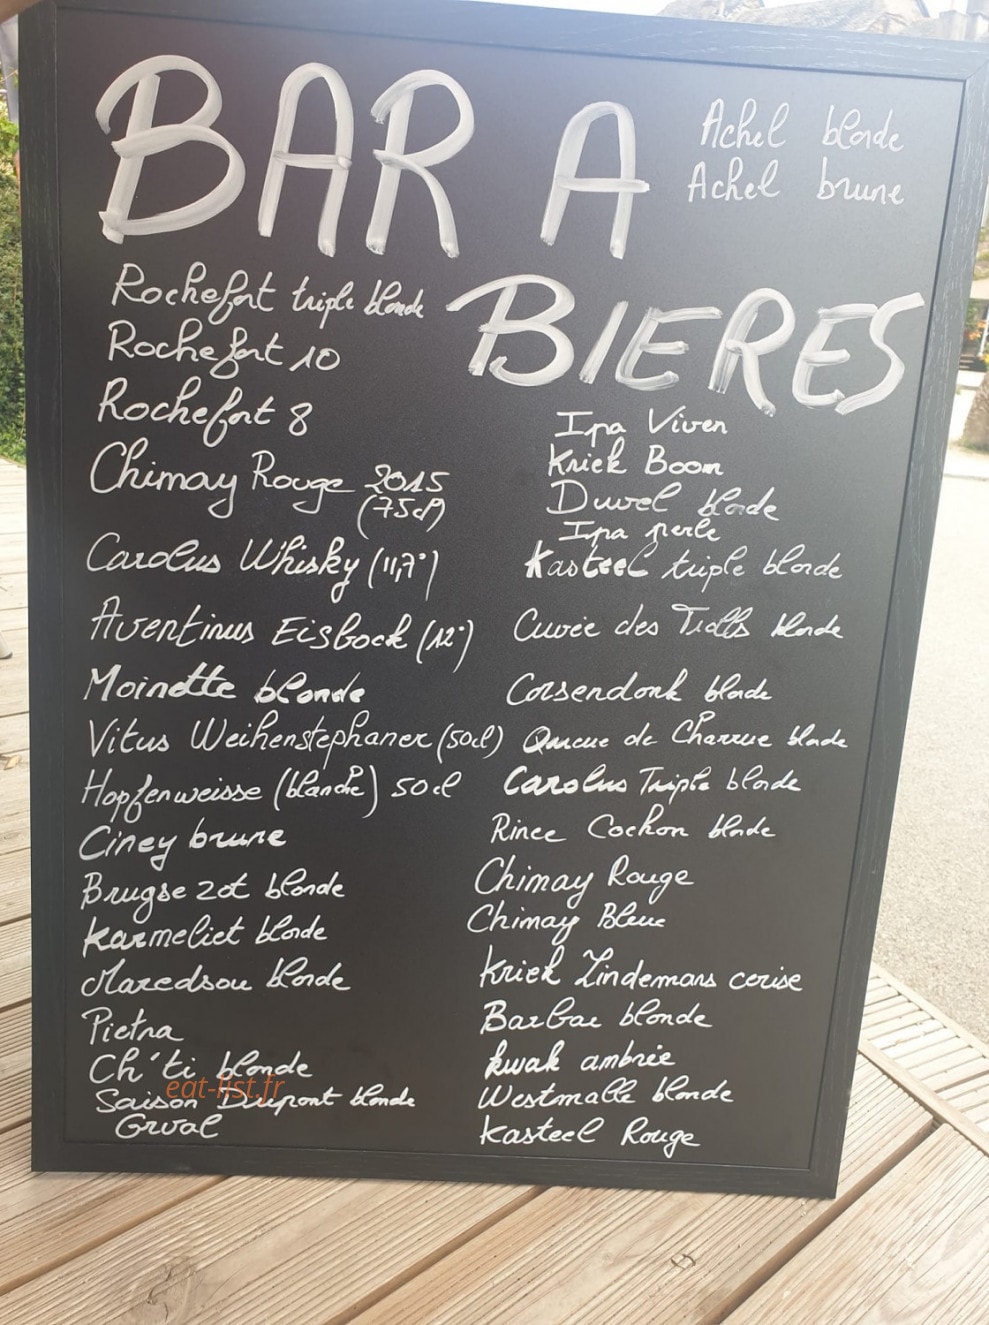 BAR A
BIERES
Achel blonde
Achel brune
Rochefort triple blonde
Rochefort 10
Rochefort 8
Chimay Rouge 2015
(75cl)
Carolus Whisky (11,7°)
Aventinus Eisbock (12°)
Moinette blonde
Vitus Weihenstephaner (50cl)
Hopfenweisse (blanche) 50cl
Ciney brune
Brugse zot blonde
Karmeliet blonde
Maredsou blonde
Pietra
Ch'ti blonde
Saison Dupont blonde
Orval
Ipa Viven
Kriek Boom
Duvel blonde
Ipa perle
Kasteel triple blonde
Cuvée des Trolls blonde
Corsendonk blonde
Queue de Charrue blonde
Carolus Triple blonde
Rince Cochon blonde
Chimay Rouge
Chimay Bleue
Kriek Lindemans cerise
Barbar blonde
Kwak ambrée
Westmalle blonde
Kasteel Rouge
eat-list.fr